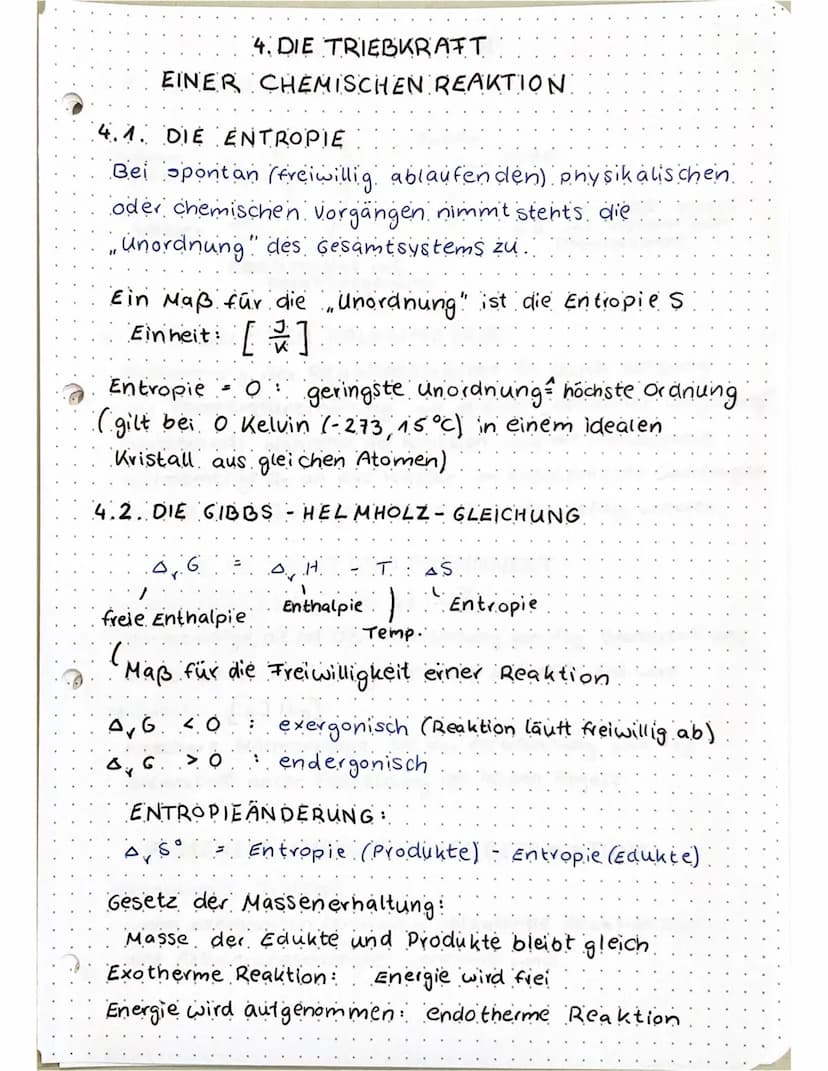 4. DIE TRIEBKRAFT
EINER CHEMISCHEN REAKTION
4.1. DIE ENTROPIE
Bei spontan (freiwillig ablaufenden) physikalischen
oder chemischen Vorgängen nimmt stehts die
„Unordnung" des Gesamtsystems zu.
Ein Maß für die „Unordnung" ist die Entropie S
Einheit: [J/K]
Entropie = 0 : geringste Unordnung ≙ höchste Ordnung
(gilt bei 0 Kelvin (-273,15°C) in einem idealen
Kristall aus gleichen Atomen)
4.2. DIE GIBBS - HELMHOLZ - GLEICHUNG
ΔrG = ΔrH - T · ΔS
freie Enthalpie Enthalpie Temp. Entropie
Maß für die Freiwilligkeit einer Reaktion
ΔrG < 0 : exergonisch (Reaktion läuft freiwillig ab)
ΔrG > 0 : endergonisch
ENTROPIEÄNDERUNG:
ΔrS° = Entropie (Produkte) - Entropie (Edukte)
Gesetz der Massenerhaltung:
Masse der Edukte und Produkte bleibt gleich
Exotherme Reaktion: Energie wird frei
Energie wird aufgenommen: endotherme Reaktion